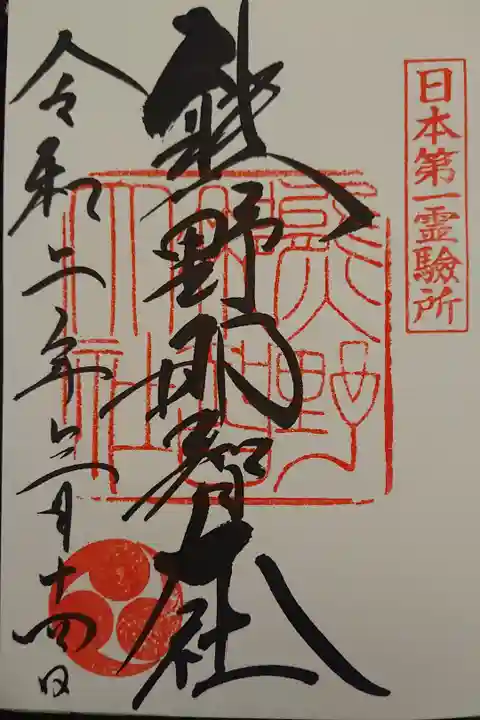 日本第一霊驗所
熊野那智大社
熊野那智大社
令和二年六月十四日